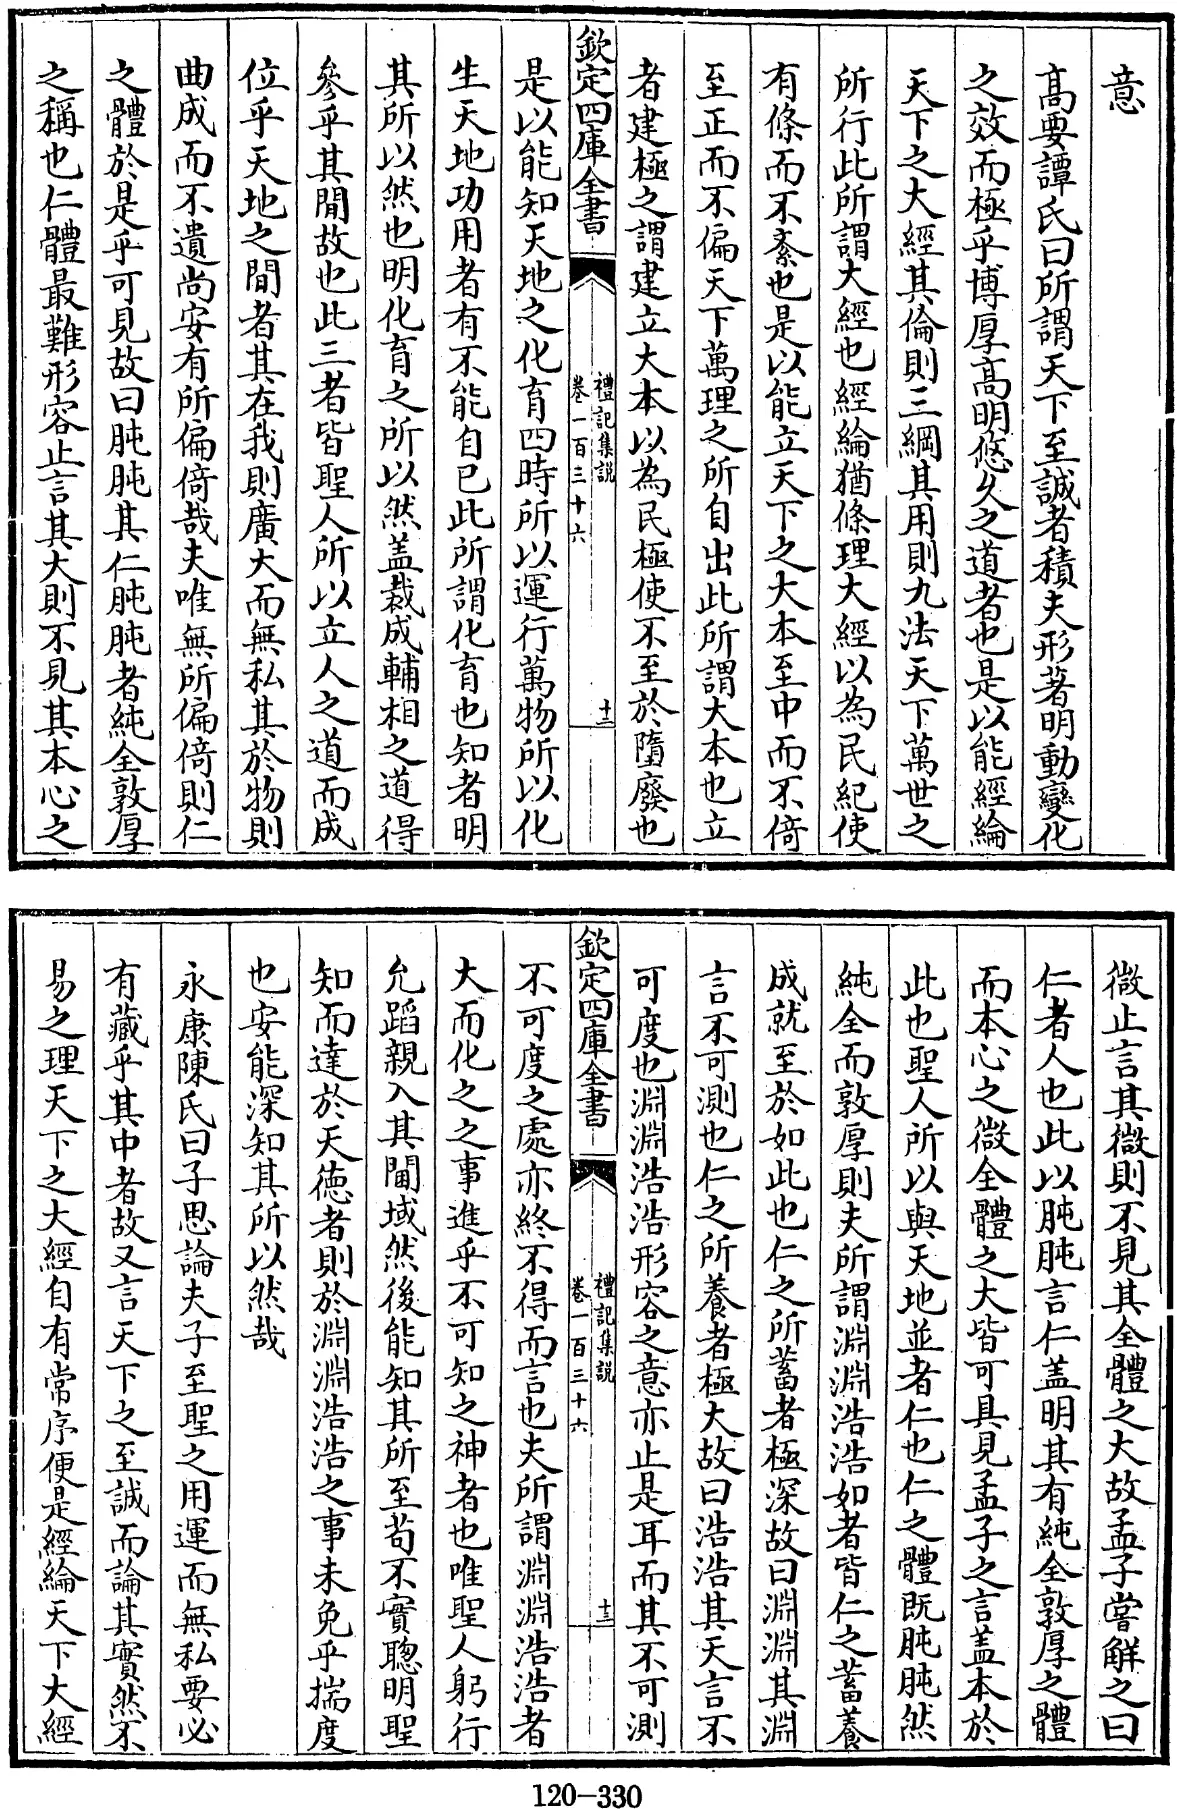 意
高要譚氏曰所謂天下至誠者積夫形著明動變化
之效而極乎博厚高明悠久之道者也是以能經綸
天下之大經其倫則三綱其用則九法天下萬世之
所行此所謂大經也經綸猶條理大經以為民紀使
有條而不紊也是以能立天下之大本至中而不倚
至正而不偏天下萬理之所自出此所謂大本也立
者建極之謂建立大本以為民極使不至於隳廢也
欽定四庫全書
禮記集說
卷一百三十六
十二
是以能知天地之化育四時所以運行萬物所以化
生天地功用者有不能自已此所謂化育也知者明
其所以然也明化育之所以然盖裁成輔相之道得
參乎其間故也此三者皆聖人所以立人之道而成
位乎天地之間者其在我則廣大而無私其於物則
曲成而不遺尚安有所偏倚哉夫唯無所偏倚則仁
之體於是乎可見故曰肫肫其仁肫肫者純全敦厚
之稱也仁體最難形容止言其大則不見其本心之
微止言其微則不見其全體之大故孟子嘗解之曰
仁者人也此以肫肫言仁盖明其有純全敦厚之體
而本心之微全體之大皆可具見孟子之言盖本於
此也聖人所以與天地並者仁也仁之體既肫肫然
純全而敦厚則夫所謂淵淵浩浩如者皆仁之蓄養
成就至於如此也仁之所蓄者極深故曰淵淵其淵
言不可測也仁之所養者極大故曰浩浩其天言不
可度也淵淵浩浩形容之意亦止是耳而其不可測
欽定四庫全書
禮記集說
卷一百三十六
十三
不可度之處亦終不得而言也夫所謂淵淵浩浩者
大而化之之事進乎不可知之神者也唯聖人躬行
允蹈親入其閫域然後能知其所至苟不實聰明聖
知而達於天德者則於淵淵浩浩之事未免乎揣度
也安能深知其所以然哉
永康陳氏曰子思論夫子至聖之用運而無私要必
有藏乎其中者故又言天下之至誠而論其實然不
易之理天下之大經自有常序便是經綸天下大經
120-330